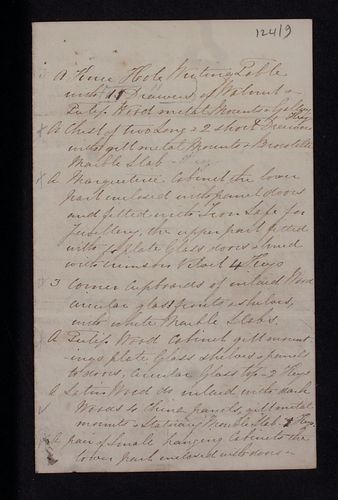 124/9
A Knee Hole Writing Table
with 11 Drawers of Walnut &
Tulip Wood metal Mounts & Gallery
Keys
A Chest of two Long & 2 short Drawers
with gilt metal Mounts & Brocatelle
Marble Slab
A Marqueterie Cabinet the lower
part enclosed with panel doors
and fitted with Iron Safe for
Jewellery, the upper part fitted
with plate Glass doors & lined
with crimson Velvet 4 Keys
3 Corner Cupboards of inlaid Wood
circular glass fronts & shelves,
with white Marble Slabs.
A Tulip Wood Cabinet gilt mount
ings plate Glass shelves & panels
to doors, circular Glass top - 2 Keys
A Satin Wood do inlaid with dark
Woods & China panels, gilt metal
mounts & Statuary Marble Slab. Keys
A pair of Small hanging Cabinets the
lower part enclosed with doors -